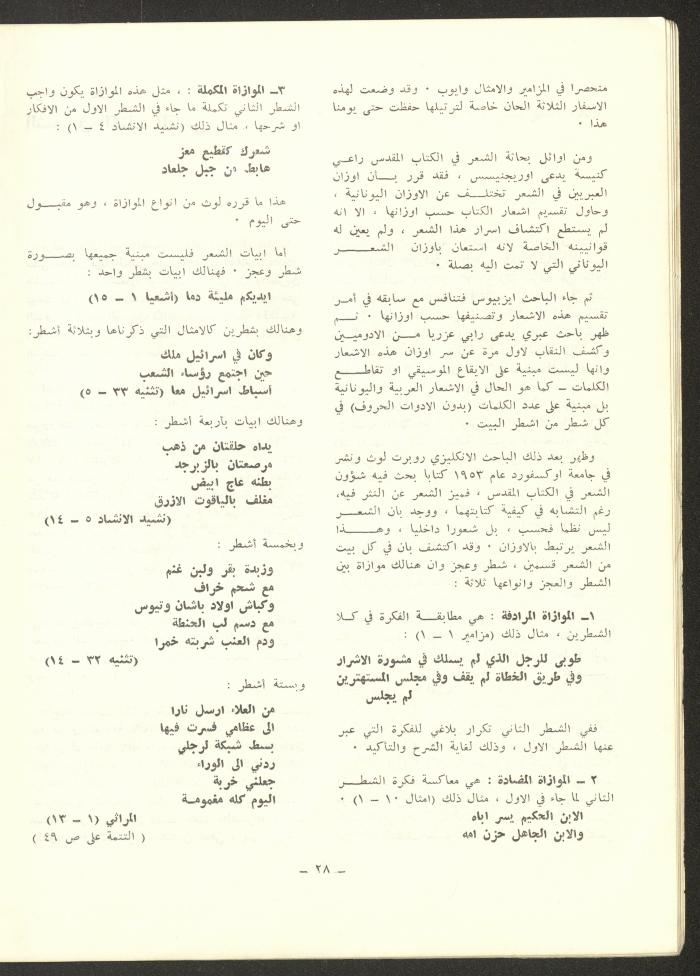 منحصرا في المزامير والامثال وايوب . وقد وضعت لهذه
الاسفار الثلاثة الحان خاصة لترتيلها حفظت حتى يومنا
هذا .
ومن اوائل بحاثة الشعر في الكتاب المقدس راعي
كنيسة يدعى اوريجنيسس ، فقد قرر بان اوزان
العبريين في الشعر تختلف عن الاوزان اليونانية ،
وحاول تقسيم اشعار الكتاب حسب اوزانها ، الا انه
لم يستطع اكتشاف اسرار هذا الشعر ، ولم يعين له
قوانيينه الخاصة لانه استعان باوزان الشعر
اليوناني التي لا تمت اليه بصلة .
ثم جاء الباحث ايزبيوس فتنافس مع سابقه في أمر
تقسيم هذه الاشعار وتصنيفها حسب اوزانها . ثم
ظهر باحث عبري يدعى رابي عزريا من الادوميين
وكشف النقاب لاول مرة عن سر اوزان هذه الاشعار
وانها ليست مبنية على الايقاع الموسيقي او تقاطع
الكلمات ـ كما هو الحال في الاشعار العربية واليونانية
بل مبنية على عدد الكلمات (بدون الادوات الحروف) في
كل شطر من اشطر البيت .
وظهر بعد ذلك الباحث الانكليزي روبرت لوث ونشر
في جامعة اوكسفورد عام ١٩٥٣ كتابا بحث فيه شؤون
الشعر في الكتاب المقدس ، فميز الشعر عن النثر فيه،
رغم التشابه في كيفية كتابتهما ، ووجد بان الشعر
ليس نظما فحسب ، بل شعورا داخليا ، وهذا
الشعر يرتبط بالاوزان . وقد اكتشف بان في كل بيت
من الشعر قسمين ، شطر وعجز وان هنالك موازاة بين
الشطر والعجز وانواعها ثلاثة :
١ـ الموازاة المرادفة : هي مطابقة الفكرة في كلا
الشطرين ، مثال ذلك (مزامير ١ ـ ١) :
طوبى للرجل الذي لم يسلك في مشورة الاشرار
وفي طريق الخطاة لم يقف وفي مجلس المستهترين
لم يجلس
ففي الشطر الثاني تكرار بلاغي للفكرة التي عبر
عنها الشطر الاول ، وذلك لغاية الشرح والتاكيد .
٢ ـ الموازاة المضادة : هي معاكسة فكرة الشطر
الثاني لما جاء في الاول ، مثال ذلك (امثال ١٠ ـ ١) .
الابن الحكيم يسر اباه
والابن الجاهل حزن امه
٣ـ الموازاة المكملة : ، مثل هذه الموازاة يكون واجب
الشطر الثاني تكملة ما جاء في الشطر الاول من الافكار
او شرحها ، مثال ذلك (نشيد الانشاد ٤ ـ ١) :
شعرك كقطيع معز
هابط من جبل جلعاد
هذا ما قرره لوث من انواع الموازاة ، وهو مقبول
حتى اليوم .
اما ابيات الشعر فليست مبنية جميعها بصورة
شطر وعجز . فهنالك ابيات بشطر واحد :
ايديكم مليئة دما (أشعيا ١ ـ ١٥)
وهنالك بشطرين كالامثال التي ذكرناها وبثلاثة أشطر:
وكان في اسرائيل ملك
حين اجتمع رؤساء الشعب
أسباط اسرائيل معا (تثنيه ٣٣ ـ ٥)
وهنالك ابيات باربعة أشطر :
يداه حلقتان من ذهب
مرصعتان بالزبرجد
بطنه عاج ابيض
مغلف بالياقوت الازرق
(نشيد الانشاد ٥ ـ ١٤)
وبخمسة أشطر :
وزبدة بقر ولبن غنم
مع شحم خراف
وكباش اولاد باشان وتيوس
مع دسم لب الحنطة
ودم العنب شربته خمرا
(تثنيه ٣٢ ـ ١٤)
وبستة أشطر :
من العلاء ارسل نارا
الى عظامي فسرت فيها
بسط شبكة لرجلي
ردني الى الوراء
جعلني خربة
اليوم كله مغمومة
المراثي (١ ـ ١٣)
( التتمة على ص ٤٩ )
ـ ٢٨ ـ